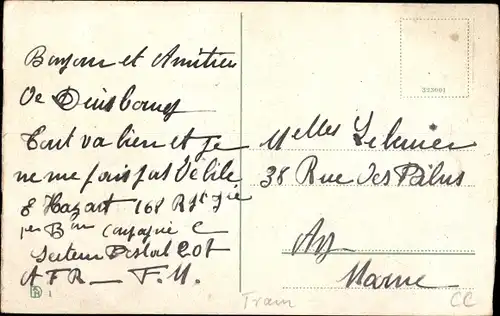 Bonjour et Amitiés
de Duisbourg
Tout va bien et je
ne me fais pas de bile
E Hazart 168 R
1er Bon Compagnie C
Secteur Postal 205
A F R — F. M.
323601
Melles
38 Rue des Pâlus
Ay
Marne
Tram
CC